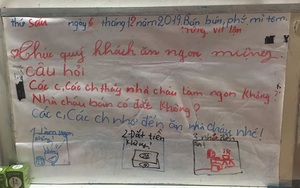 thứ sáu ngày 6 tháng 12 năm 2019 Bán bún, phở, mì tem.
Trứng vịt lộn
Chúc quý khách ăn ngon miệng.
câu hỏi
Các c, Các ch thấy nhà cháu làm ngon không?
Nhà cháu bán có đắt không?
Các c, Các ch nhớ đến ăn nhà cháu nhé!
1. Làm ngon
2. Đắt tiền
không?
3.